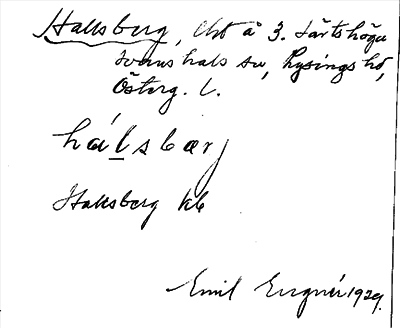 Hallsberg, lht å 3. Järtshögn
Svanshals sn, Lysings hd,
Österg. l.
hálsbærj
Hallsberg kb
Emil Engnér 1929.